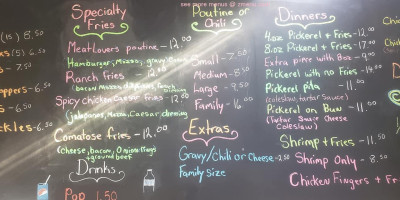 see more menus @
Specialty
Fries
MeatLovers poutine - 12.00
Hamburger, Mozza, gravy
Ranch fries - 12.00
Spicy chicken Caesar fries - 12.50
Jalapenos, Mozza, Caesar dressing
Comatose fries - 12.00
(cheese, bacon, Onion Rings
+ ground beef
Drinks
Pop 1.50
Poutine or
Chili
Small - 7.50
Medium - 8.50
Large - 9.50
Family - 16.00
Extras
Gravy/chili or cheese - 2.50
Family Size
Dinners
4oz Pickerel + Fries - 12.00
8oz Pickerel + Fries - 17.00
Extra piece with 8oz - 9.00
Pickerel with no fries - 14.00
Pickerel Pita - 11.00
(coleslaw, tartar Sauce)
Pickerel on Bun - 11.00
(Tartar Sauce Cheese
Coleslaw)
Shrimp + Fries - 11.50
Shrimp Only - 8.50
Chicken Fingers + Fr